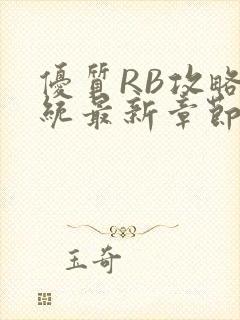 優質RB攻略
統最新章節
玉奇